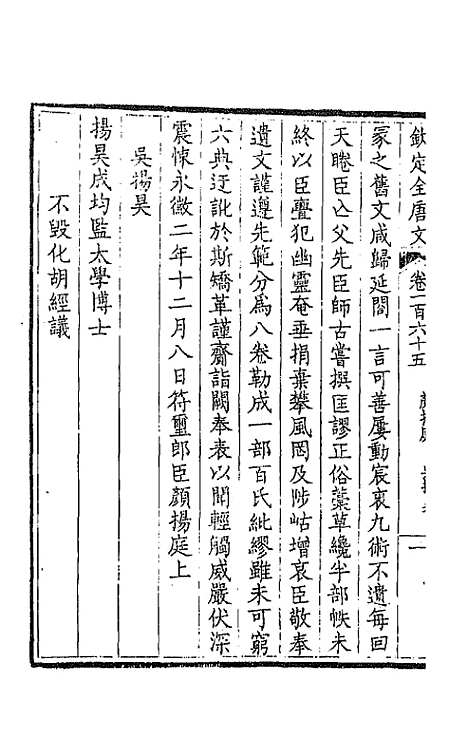 欽定全唐文 卷一百六十五 顏揚庭 吳揚昊 一
冢之舊文咸歸延閣一言可善屢動宸衷九術不遺每回
天睠臣亡父先臣師古嘗撰匡謬正俗藁草纔半部帙未
終以臣舋犯幽靈奄垂捐棄攀風罔及陟岵增哀臣敬奉
遺文謹遵先範分為八卷勒成一部百氏紕繆雖未可窮
六典迂訛於斯矯革謹齎詣闕奉表以聞輕觸威嚴伏深
震悚永徽二年十二月八日符璽郎臣顏揚庭上
吳揚昊
揚昊成均監太學博士
不毀化胡經議